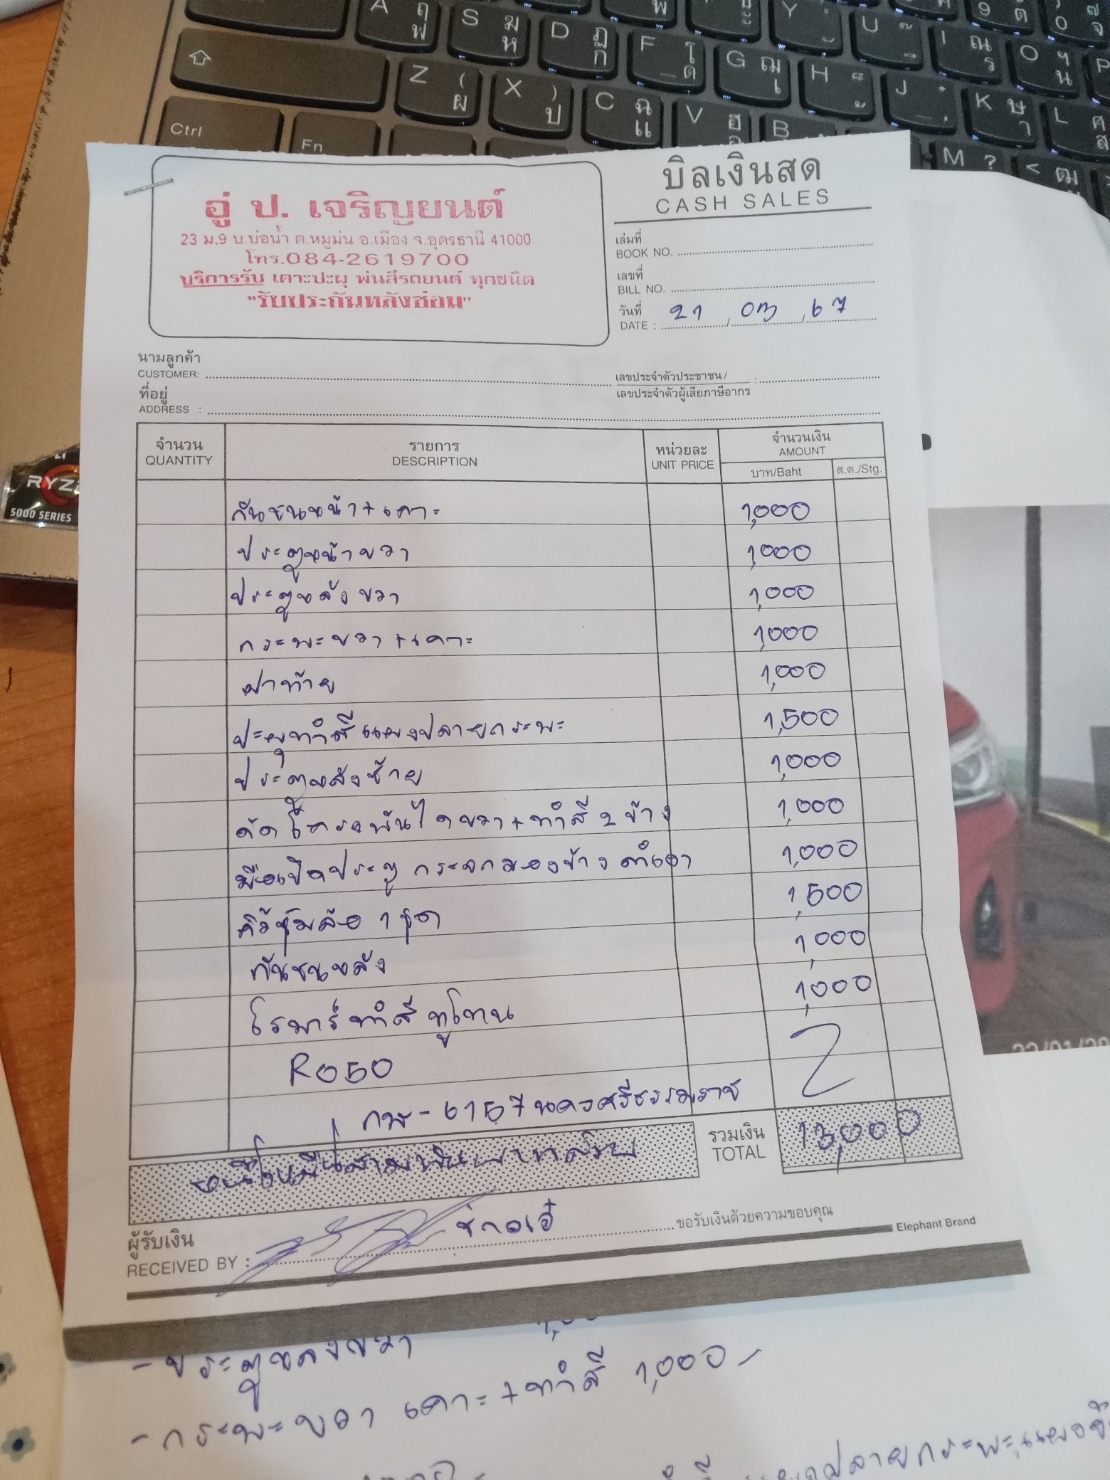 บิลเงินสด
CASH SALES
อู่ ป. เจริญยนต์
23 ม.9 บ.บ่อน้ำ ต.หมูม่น อ.เมือง จ.อุดรธานี 41000
โทร.084-2619700
บริการรับ เคาะปะผุ พ่นสีรถยนต์ ทุกชนิด
"รับประกันหลังซ่อม"
เล่มที่
BOOK NO.
เลขที่
BILL NO.
วันที่
DATE : 21 , 03 , 67
นามลูกค้า
CUSTOMER:
เลขประจำตัวประชาชน/
เลขประจำตัวผู้เสียภาษีอากร
ที่อยู่
ADDRESS :
จำนวน รายการ หน่วยละ จำนวนเงิน
QUANTITY DESCRIPTION UNIT PRICE AMOUNT
บาท/Baht ส.ต./Stg.
กันชนหน้า+เคาะ 1,000
ประตูหน้าขวา 1,000
ประตูหลังขวา 1,000
กระพะขวา+เคาะ 1,000
ฝาท้าย 1,000
ปะผุทำสีแผงปลายกระพะ 1,500
ประตูหลังซ้าย 1,000
ดัดโครงบันไดขวา+ทำสี 2 ข้าง 1,000
มือเปิดประตู กระจกมองข้าง ดำเงา 1,000
คิ้วซุ้มล้อ 1 ชุด 1,500
กันชนหลัง 1,000
โรบาร์ทำสีทูโทน 1,000
RO50
กท-6157 นครศรีธรรมราช
รวมเงิน
TOTAL 13,000
หนึ่งหมื่นสามพันบาทถ้วน
ผู้รับเงิน
RECEIVED BY : ช่างเอ๋ ขอรับเงินด้วยความขอบคุณ
Elephant Brand
- ประตูหลังขวา
- กระพะขวา เคาะ+ทำสี 1,000.-
RYZ
5000 SERIES
Ctrl
Fn
A
S
D
F
G
H
J
K
L
Z
X
C
V
B
M
Y
U
I
O
P